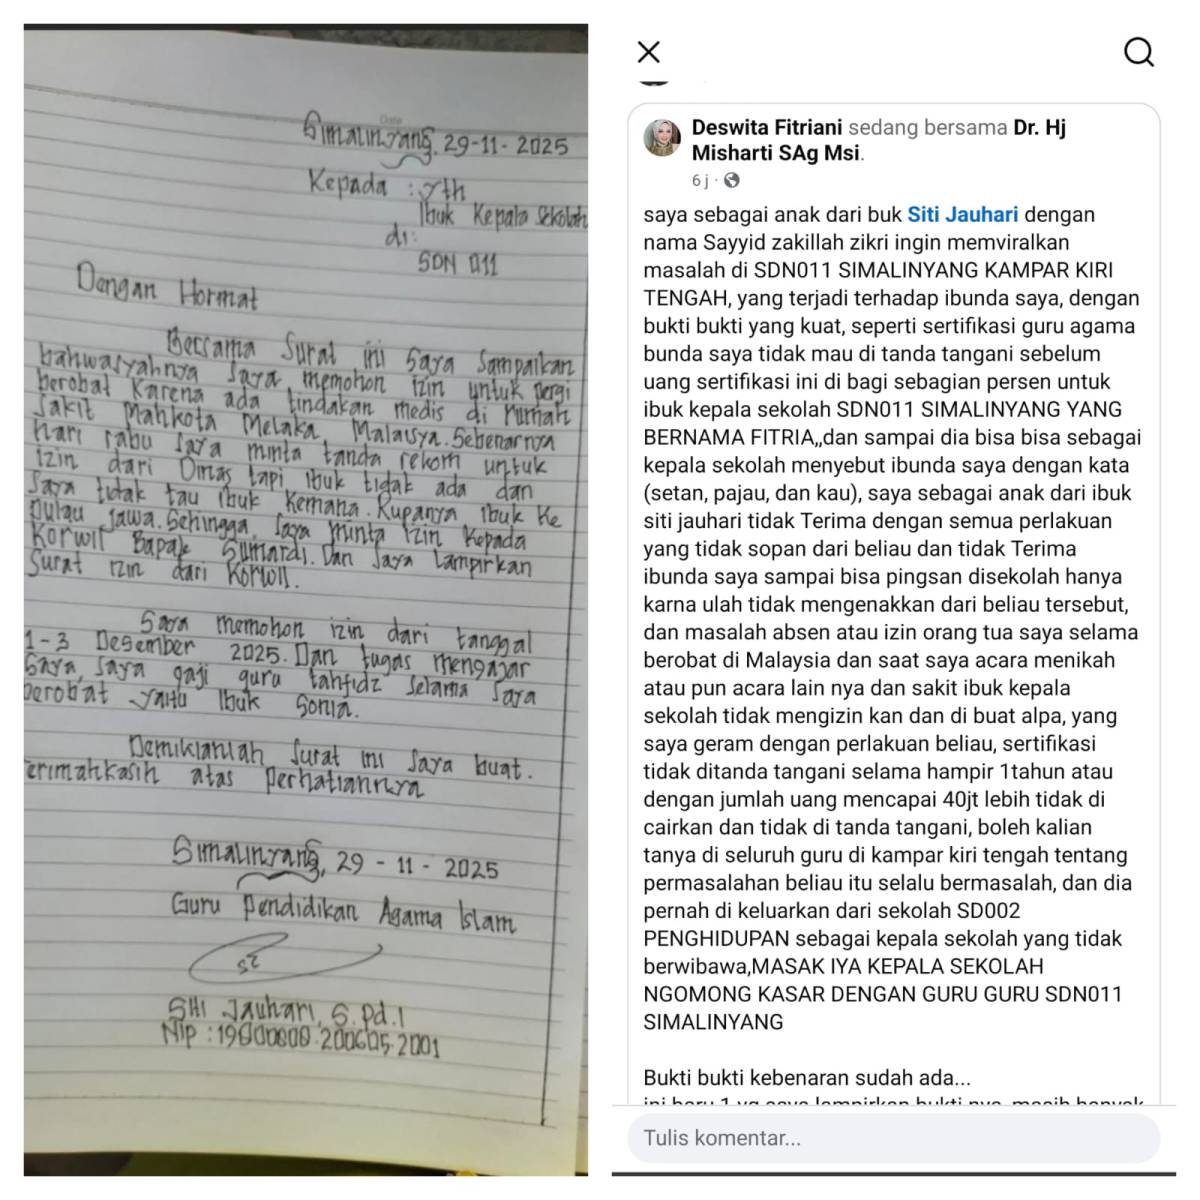 Date
Simalinyang, 29-11-2025
Kepada : yth
Ibuk Kepala Sekolah
di:
SDN 011
Dengan Hormat
Bersama Surat ini Saya Sampaikan
bahwasyahnya Saya memohon izin untuk Pergi
berobat Karena ada tindakan medis di rumah
Sakit Mahkota Melaka, Malaysia. Sebenarnya
Hari rabu Saya minta tanda rekom untuk
izin dari Dinas tapi ibuk tidak ada dan
Saya tidak tau ibuk Kemana. Rupanya ibuk Ke
Pulau Jawa. Sehingga Saya minta izin Kepada
Korwil Bapak Sumardi. Dan Saya lampirkan
Surat izin dari Korwil.
Saya memohon izin dari tanggal
1-3 Desember 2025. Dan tugas mengajar
Saya, Saya gaji guru tahfidz Selama Saya
berobat yaitu Ibuk Sonia.
Demikianlah Surat ini Saya buat.
Terimahkasih atas Perhatiannya
Simalinyang, 29 - 11 - 2025
Guru Pendidikan Agama Islam
Siti Jauhari, S.Pd.I
Nip :
Deswita Fitriani sedang bersama Dr. Hj
Misharti SAg Msi.
6 j ·
saya sebagai anak dari buk Siti Jauhari dengan
nama Sayyid zakillah zikri ingin memviralkan
masalah di SDN011 SIMALINYANG KAMPAR KIRI
TENGAH, yang terjadi terhadap ibunda saya, dengan
bukti bukti yang kuat, seperti sertifikasi guru agama
bunda saya tidak mau di tanda tangani sebelum
uang sertifikasi ini di bagi sebagian persen untuk
ibuk kepala sekolah SDN011 SIMALINYANG YANG
BERNAMA FITRIA,,dan sampai dia bisa bisa sebagai
kepala sekolah menyebut ibunda saya dengan kata
(setan, pajau, dan kau), saya sebagai anak dari ibuk
siti jauhari tidak Terima dengan semua perlakuan
yang tidak sopan dari beliau dan tidak Terima
ibunda saya sampai bisa pingsan disekolah hanya
karna ulah tidak mengenakkan dari beliau tersebut,
dan masalah absen atau izin orang tua saya selama
berobat di Malaysia dan saat saya acara menikah
atau pun acara lain nya dan sakit ibuk kepala
sekolah tidak mengizin kan dan di buat alpa, yang
saya geram dengan perlakuan beliau, sertifikasi
tidak ditanda tangani selama hampir 1tahun atau
dengan jumlah uang mencapai 40jt lebih tidak di
cairkan dan tidak di tanda tangani, boleh kalian
tanya di seluruh guru di kampar kiri tengah tentang
permasalahan beliau itu selalu bermasalah, dan dia
pernah di keluarkan dari sekolah SD002
PENGHIDUPAN sebagai kepala sekolah yang tidak
berwibawa,MASAK IYA KEPALA SEKOLAH
NGOMONG KASAR DENGAN GURU GURU SDN011
SIMALINYANG
Bukti bukti kebenaran sudah ada...
ini baru 1 yg saya lampirkan bukti nya, masih banyak
Tulis komentar...